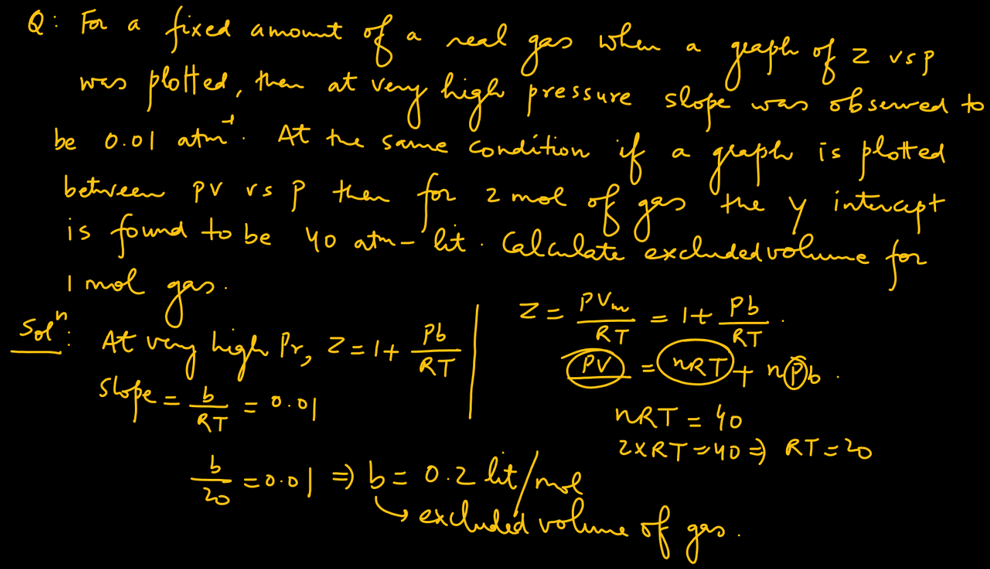 Q: For a fixed amount of a real gas when a graph of Z vs P
was plotted, then at very high pressure slope was observed to
be 0.01 atm⁻¹. At the same condition if a graph is plotted
between PV vs P then for 2 mol of gas the y intercept
is found to be 40 atm-lit. Calculate excluded volume for
1 mol gas.
Solⁿ: At very high Pr, Z = 1 + Pb/RT
Slope = b/RT = 0.01
Z = PVm/RT = 1 + Pb/RT.
PV = nRT + nPb.
nRT = 40
2×RT = 40 ⇒ RT = 20
b/20 = 0.01 ⇒ b = 0.2 lit/mol
→ excluded volume of gas.